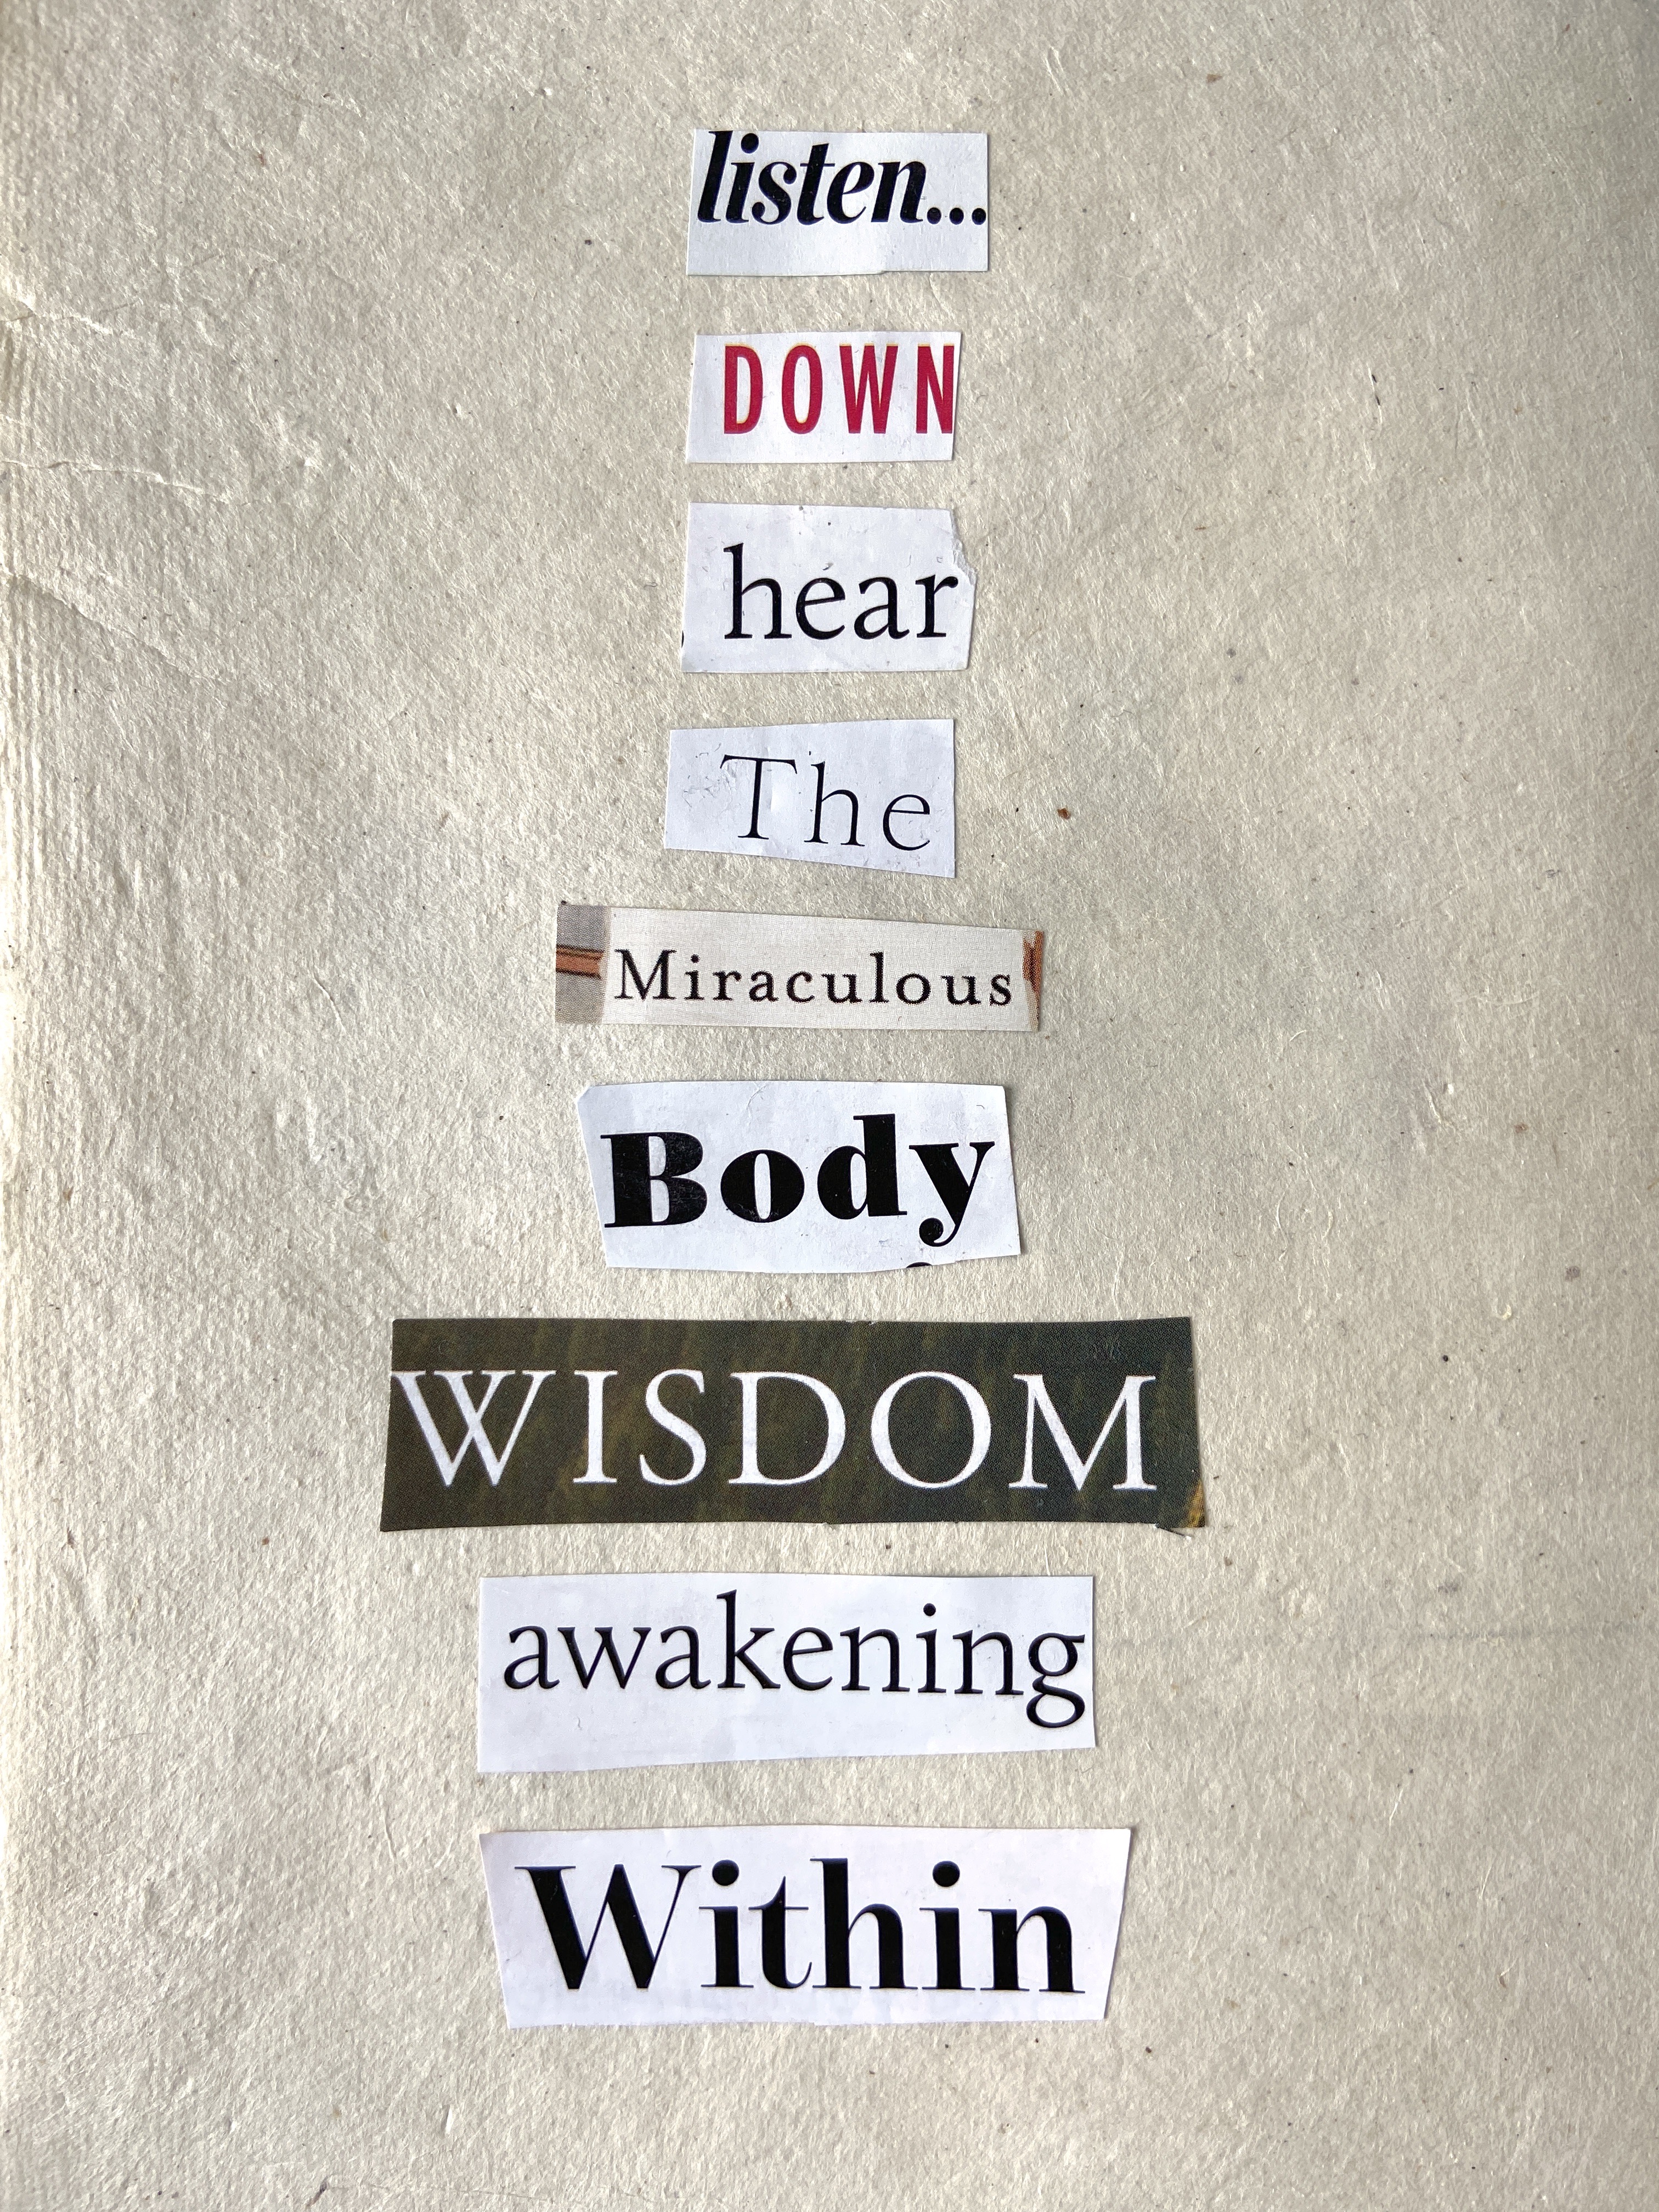 listen...
DOWN
hear
The
Miraculous
Body
WISDOM
awakening
Within